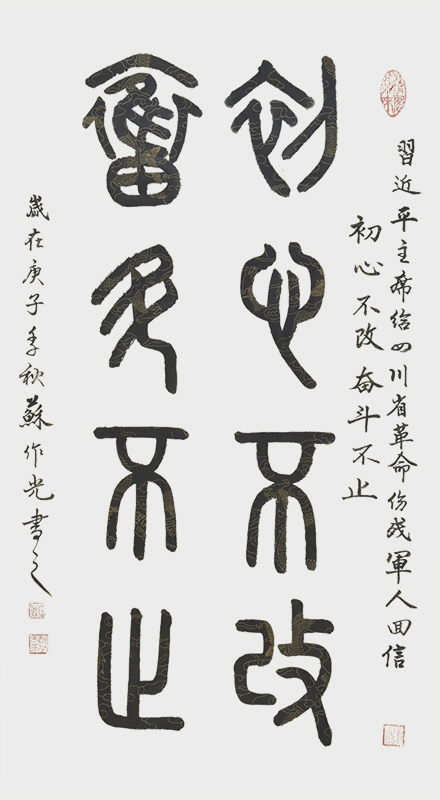 習近平主席给四川省革命伤残軍人回信
初心不改奋斗不止
初心不改
奮鬥不止
歲在庚子季秋蘇作光書之